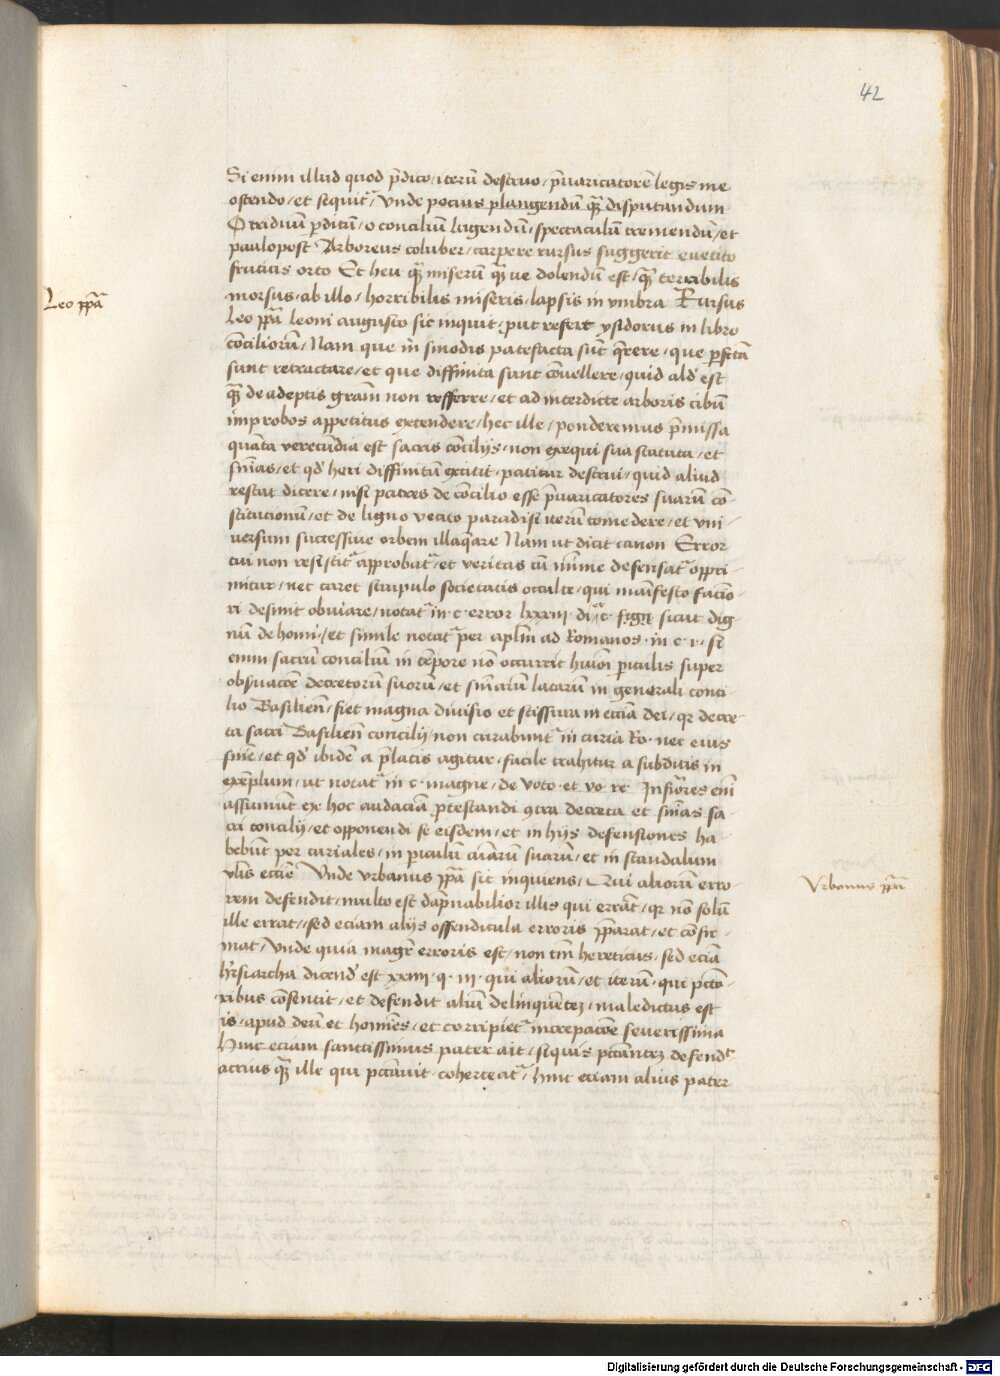 42
Si enim illud quod p̄dico iterū destruo / p̄uaricatorē legis me
ostendo / et sequit᷑ / Vnde pocius plangendū q̄ disputandum
O triduū p̄ditū / o conciliū lugendū / spectaculū tremendū / et
paulopost Arboreus coluber / carpere rursus suggerit e vetito
fruticis orto Et heu q̄ miserū q̄ ve dolendū est / q̄ terribilis
morsus / ab illo / horribilis miseris / lapsis in vmbra Rursus
Leo pp̄a
Leo pp̄a leoni augusto sic inquit / put refert ysidorus in libro
cōciliorū / Nam que in sinodis patefacta sūt q̄rere / que p̄fcā
sunt retractare / et que diffinita sunt cōuellere / quid ald̄ est
q̄ de adeptis grām non refferre / et ad interdicte arboris cibū
improbos appetitus extendere / hec ille / ponderemus p̄missa
quāta verecūdia est sacris cōcilijs / non exequi sua statuta / et
sn̄ias / et qd̄ heri diffinitū extitit / patitur destrui / quid aliud
restat dicere / nisi patres de cōcilio esse p̄uaricatores suarū cō-
stitucionū / et de ligno vetito paradisi iterū comedere / et vni-
uersum successiue orbem illaq̄are Nam ut dicit canon Error
cui non resistit᷑ approbat᷑ / et veritas cū mīme defensat᷑ oppri-
mitur / nec caret scrupulo societatis occulte / qui manifesto facio-
ri desinit obuiare / notat᷑ in c error lxxxiii di et c sicut dig-
nū de homi / et simile notat᷑ per aplm̄ ad Romanos in c i si
enim sacrū conciliū in tēpore nō occurrit huiōi periculis super
obseruacōe decretorū suorū / et sn̄iarū latarū in generali conci-
lio Basilien̄ / fiet magna diuisio et scissura in ecc̄ia dei / qr decre-
ta sacri Basilien̄ concilij / non curabunt᷑ in curia Ro nec eius
sn̄ie / et qd̄ ibidē a p̄latis agitur / facile trahitur a subditis in
exēplum / ut notat᷑ in c magne / de voto et vo re Inferiores enī
assumūt ex hoc audaciā p̄testandi 9tra decreta et sn̄ias sa-
cri concilij / et opponendi se eisdem / et in hijs defensiones ha-
bebūt per curiales / in periculū aīarū suarū / et in scandalum
vl̄is ecc̄ie Vnde vrbanus pp̄a sic inquiens / Qui aliorū erro-
Vrbanus pp̄a
rem defendit / multo est dāpnabilior illis qui errāt / qr nō solū
ille errat / sed eciam alijs offendicula erroris p̄parat / et cōfir-
mat / Vnde quia magr̄ erroris est / non tm̄ hereticus / sed eciā
hr̄siarcha dicend̄ est xxiiii q iii qui aliorū / et iterū qui pctō-
ribus cōsentit / et defendit aliū delinquētez / maledictus est
is / apud deū et homīes / et corripiet᷑ increpacōe seuerissima
Hinc eciam sanctissimus pater ait / siquis pctāntez defend᷑
acrius q̄ ille qui pctāuit coherceat᷑ / Hinc eciam alius pater
Digitalisierung gefördert durch die Deutsche Forschungsgemeinschaft - DFG